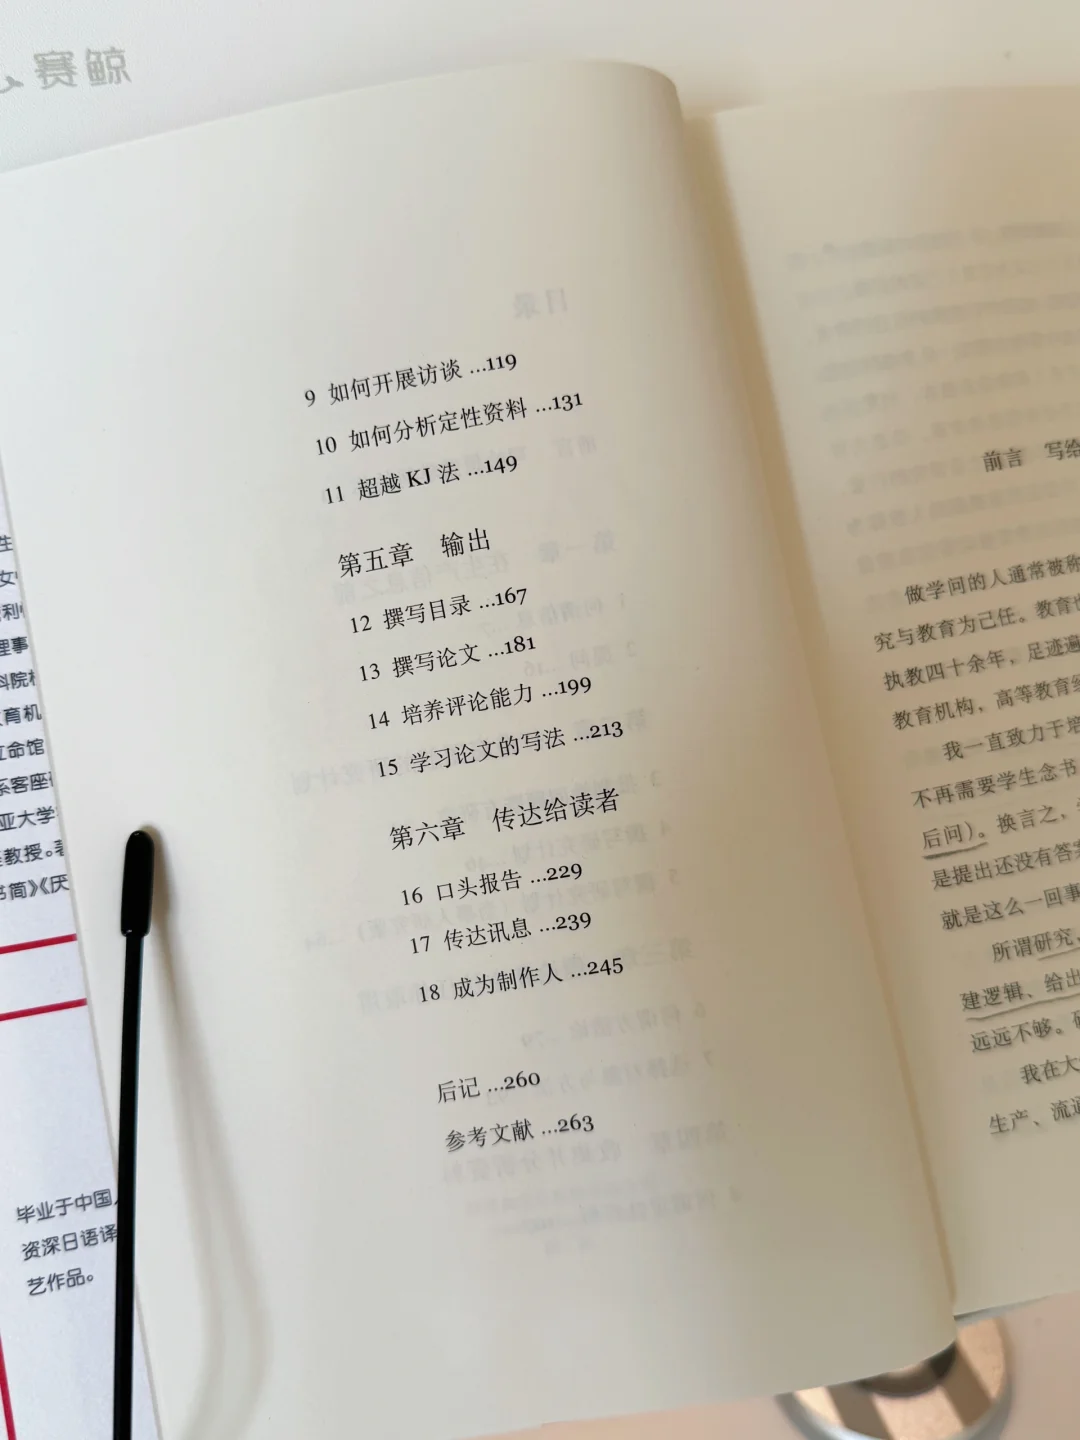 赛鲸
9 如何开展访谈 ...119
10 如何分析定性资料 ...131
11 超越 KJ 法 ...149
第五章 输出
12 撰写目录 ...167
13 撰写论文 ...181
14 培养评论能力 ...199
15 学习论文的写法 ...213
第六章 传达给读者
16 口头报告 ...229
17 传达讯息 ...239
18 成为制作人 ...245
后记 ...260
参考文献 ...263
前言 写给
做学问的人通常被称
究与教育为己任。教育也
执教四十余年，足迹遍
教育机构，高等教育经
我一直致力于培
不再需要学生念书
后问）。换言之，
是提出还没有答案
就是这么一回事
所谓研究、
建逻辑、给出
远远不够。研
我在大
生产、流通
生
女
利
理事
科院
教育机
立命馆
系客座
亚大学
教授。著
书简》《厌
毕业于中国
资深日语译
艺作品。